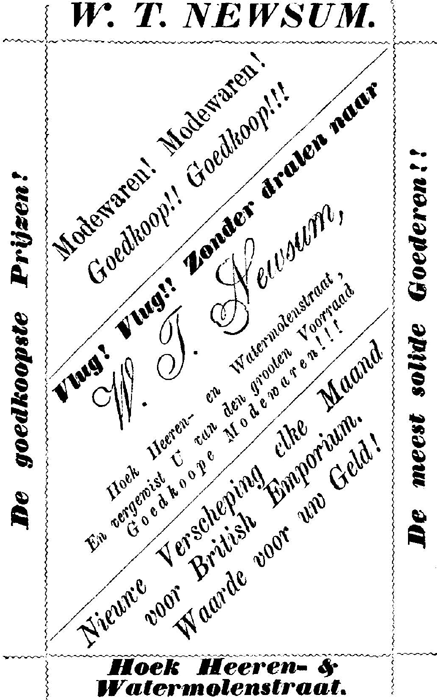 W. T. NEWSUM.
De goedkoopste Prijzen!
Modewaren! Modewaren!
Goedkoop!! Goedkoop!!!
Vlug! Vlug!! Zonder dralen naar
W. T. Newsum,
Hoek Heeren- en Watermolenstraat,
En vergewist U van den grooten Voorraad
Goedkoope Modewaren!!!
Nieuwe Verscheping elke Maand
voor British Emporium.
Waarde voor uw Geld!
De meest solide Goederen!!
Hoek Heeren- &
Watermolenstraat.